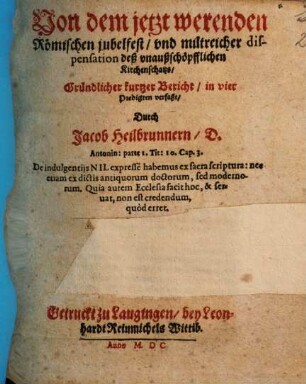 Von dem jetzt werenden
Römischen jubelfest / vnd miltreicher dis-
pensation deß vnaußschöpfflichen
Kirchenschatz /
Gründlicher kurtzer Bericht / in vier
Predigten verfasst /
Durch
Jacob Heilbrunnern / D.
Antonin: parte 1. Tit: 10. Cap. 3.
De indulgentijs NIL expressè habemus ex sacra scriptura: nec
etiam ex dictis antiquorum doctorum, sed moderno-
rum. Quia autem Ecclesia facit hoc, & ser-
uat, non est credendum,
quòd erret.
Getruckt zu Laugingen / bey Leon-
hardt Reinmichels Wittib.
Anno M. DC